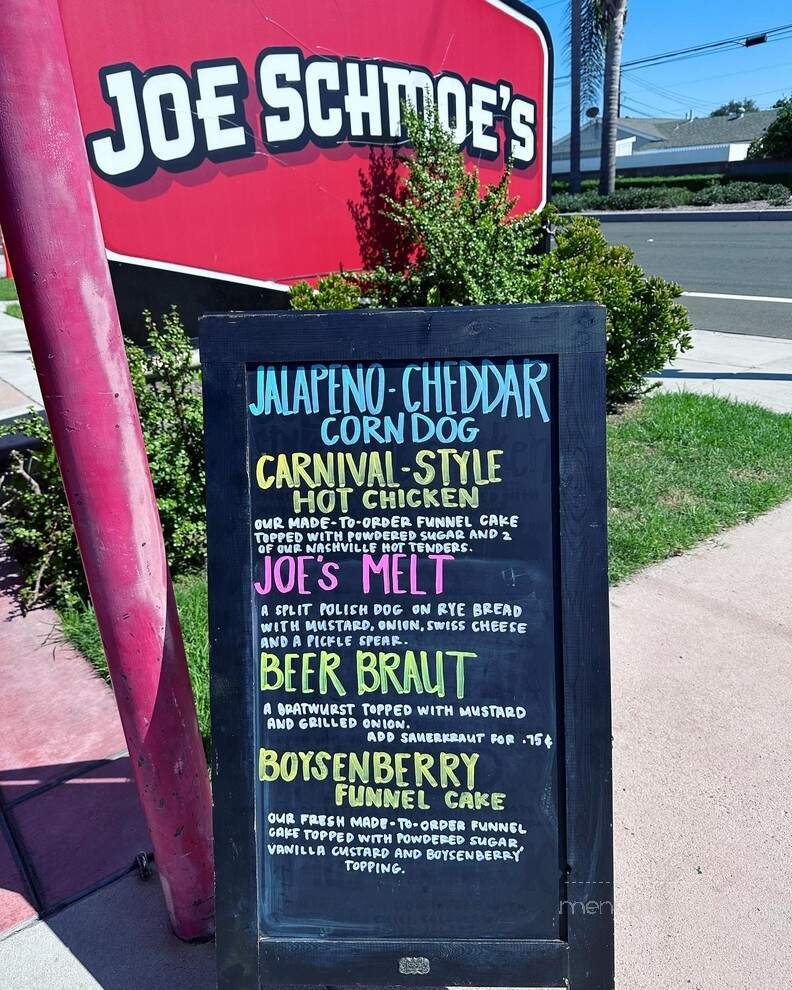 JOE SCHMOE'S
JALAPENO-CHEDDAR
CORN DOG
CARNIVAL-STYLE
HOT CHICKEN
OUR MADE-TO-ORDER FUNNEL CAKE
TOPPED WITH POWDERED SUGAR AND 2
OF OUR NASHVILLE HOT TENDERS.
JOE'S MELT
A SPLIT POLISH DOG ON RYE BREAD
WITH MUSTARD, ONION, SWISS CHEESE
AND A PICKLE SPEAR.
BEER BRAUT
A BRATWURST TOPPED WITH MUSTARD
AND GRILLED ONION.
ADD SAUERKRAUT FOR .75¢
BOYSENBERRY
FUNNEL CAKE
OUR FRESH MADE-TO-ORDER FUNNEL
CAKE TOPPED WITH POWDERED SUGAR,
VANILLA CUSTARD AND BOYSENBERRY
TOPPING.